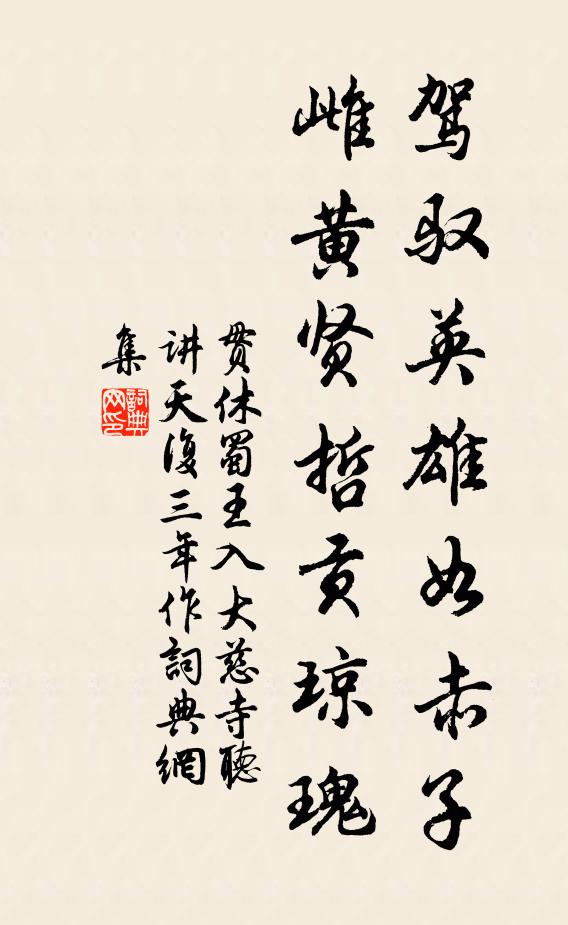 驾驭英雄如赤子
雌黄贤哲贡琼瑰
贯休蜀王入大慈寺聽
讲天復三年作詞典網
集
詞典网印